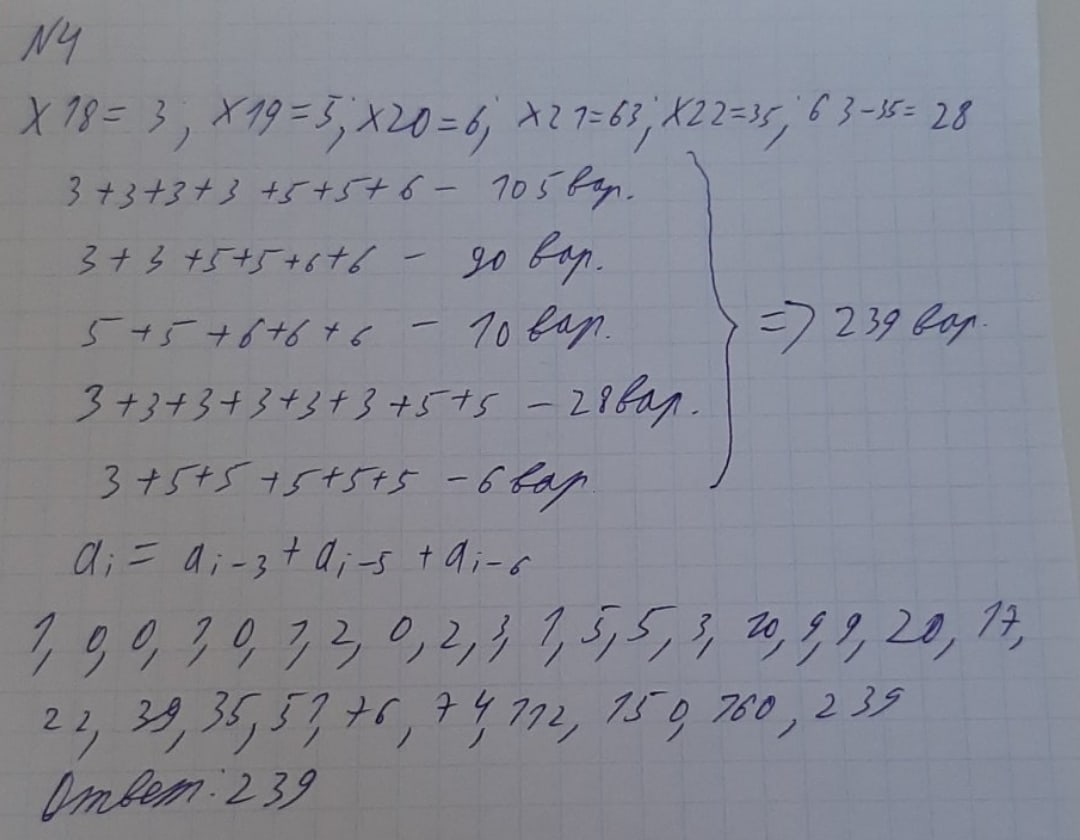 N4
X18 = 3; X19 = 5; X20 = 6; X21 = 63; X22 = 35; 63 - 35 = 28
3 + 3 + 3 + 3 + 5 + 5 + 6 - 105 вар.
3 + 3 + 5 + 5 + 6 + 6 - 90 вар.
5 + 5 + 6 + 6 + 6 - 10 вар. => 239 вар.
3 + 3 + 3 + 3 + 3 + 3 + 5 + 5 - 28 вар.
3 + 5 + 5 + 5 + 5 + 5 - 6 вар
ai = ai-3 + ai-5 + ai-6
1, 0, 0, 1, 0, 1, 2, 0, 2, 3, 1, 5, 5, 3, 10, 9, 9, 20, 17,
22, 39, 35, 51, 76, 74, 112, 150, 160, 239
Ответ: 239